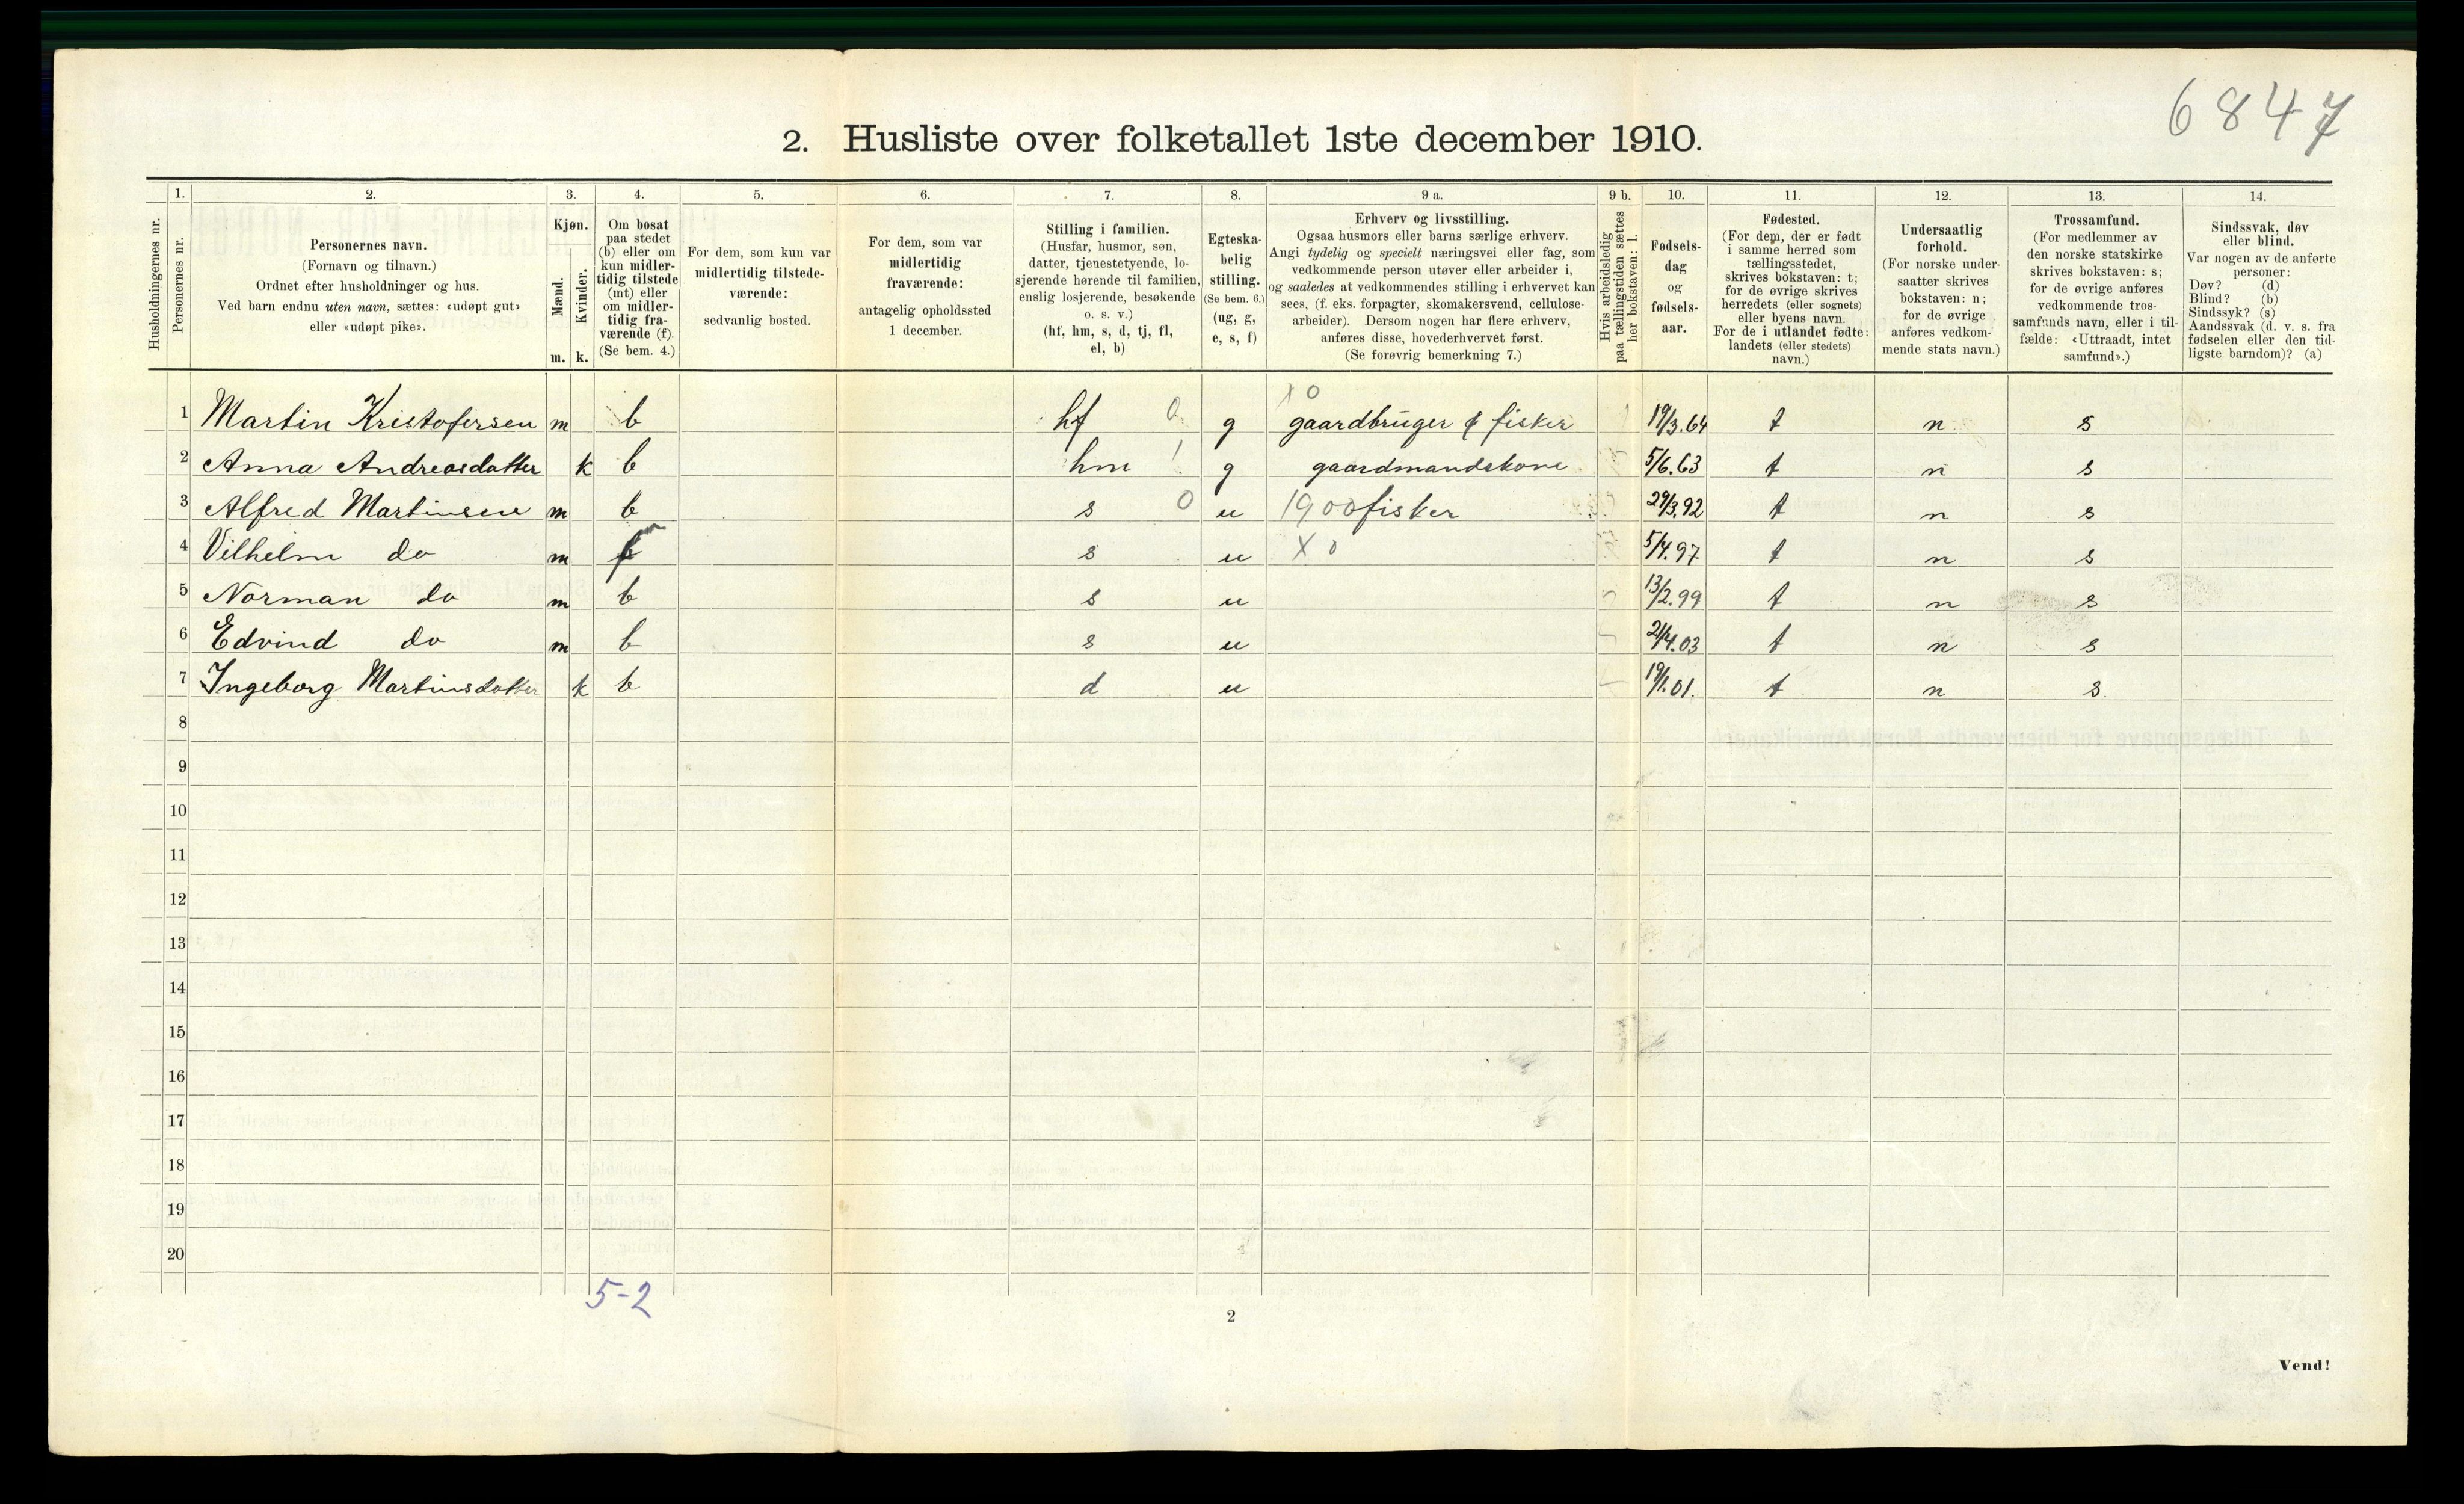 6847
2. Husliste over folketallet 1ste december 1910.
Husholdningernes nr.
1.
Personernes nr.
2.
Personernes navn.
(Fornavn og tilnavn.)
Ordnet efter husholdninger og hus.
Ved barn endnu uten navn, sættes: «udøpt gut»
eller «udøpt pike».
3.
Kjøn.
Mænd.
Kvinder.
m. k.
4.
Om bosat
paa stedet
(b) eller om
kun midler-
tidig tilstede
(mt) eller
om midler-
tidig fra-
værende (f).
(Se bem. 4.)
5.
For dem, som kun var
midlertidig tilstede-
værende:
sedvanlig bosted.
6.
For dem, som var
midlertidig
fraværende:
antagelig opholdssted
1 december.
7.
Stilling i familien.
(Husfar, husmor, søn,
datter, tjenestetyende, lo-
sjerende hørende til familien,
enslig losjerende, besøkende
o. s. v.)
(hf, hm, s, d, tj, fl,
el, b)
8.
Egteska-
belig
stilling.
(Se bem. 6.)
(ug, g,
e, s, f)
9 a.
Erhverv og livsstilling.
Ogsaa husmors eller barns særlige erhverv.
Angi tydelig og specielt næringsvei eller fag, som
vedkommende person utøver eller arbeider i,
og saaledes at vedkommendes stilling i erhvervet kan
sees, (f. eks. forpagter, skomakersvend, cellulose-
arbeider). Dersom nogen har flere erhverv,
anføres disse, hovederhvervet først.
(Se forøvrig bemerkning 7.)
9 b.
Hvis arbeidsledig
paa tællingstiden sættes
her bokstaven: l.
10.
Fødsels-
dag
og
fødsels-
aar.
11.
Fødested.
(For dem, der er født
i samme herred som
tællingsstedet,
skrives bokstaven: t;
for de øvrige skrives
herredets (eller sognets)
eller byens navn.
For de i utlandet fødte:
landets (eller stedets)
navn.)
12.
Undersaatlig
forhold.
(For norske under-
saatter skrives
bokstaven: n;
for de øvrige
anføres vedkom-
mende stats navn.)
13.
Trossamfund.
(For medlemmer av
den norske statskirke
skrives bokstaven: s;
for de øvrige anføres
vedkommende tros-
samfunds navn, eller i til-
fælde: «Uttraadt, intet
samfund».)
14.
Sindssvak, døv
eller blind.
Var nogen av de anførte
personer:
Døv? (d)
Blind? (b)
Sindssyk? (s)
Aandssvak (d. v. s. fra
fødselen eller den tid-
ligste barndom)? (a)
x 0
1 Martin Kristofersen m b hf 0 g gaardbruger & fisker 19/3.64 t n s
2 Anna Andreasdatter k b hm g gaardmandskone 5/6.63 t n s
3 Alfred Martinsen m b s 0 u 1900 fisker 29/3.92 t n s
4 Vilhelm do m s u x 0 5/4.97 t n s
5 Norman do m b s u 13/2.99 t n s
6 Edvind do m b s u 21/4.03 t n s
7 Ingeborg Martinsdatter k b d u 19/1.01. t n s.
8
9
10
11
12
13
14
15
16
17
18
19
20
5-2
2
Vend!